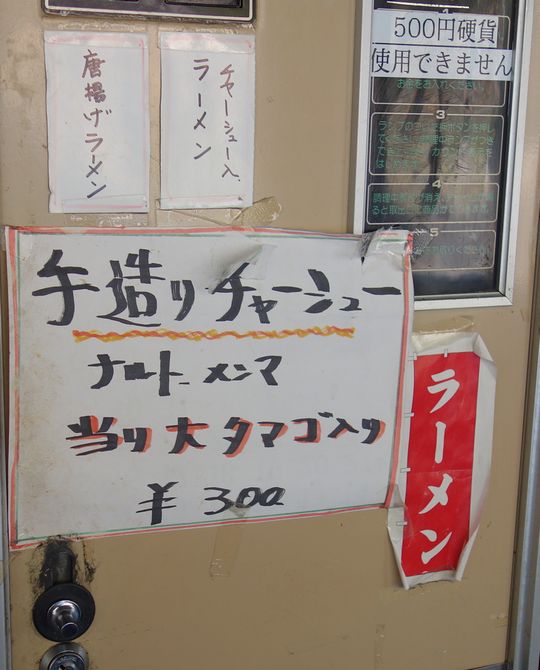 500円硬貨
使用できません
お金をお入れください。
3
4
5
唐揚げラーメン
チャーシュー入
ラーメン
手造りチャーシュー
ナルト メンマ
当り大タマゴ入り
¥300
ラーメン